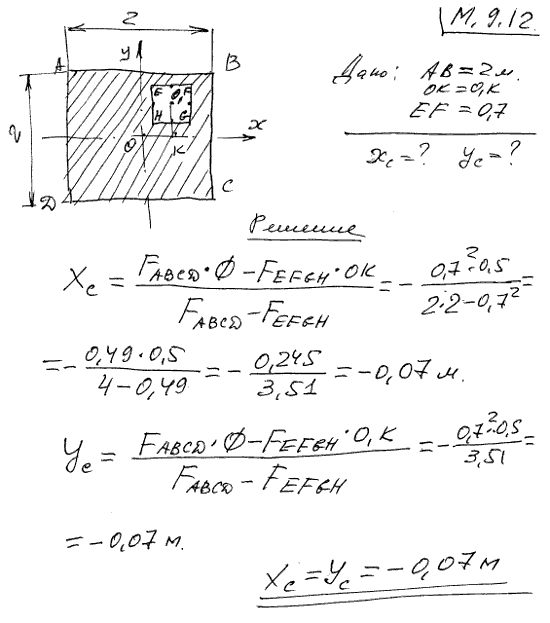 М. 9.12.
2
A
y
B
Дано: AB = 2 м.
E O₁ F
OK = O₁K
2
H G
EF = 0,7
x
O K
x_c = ? y_c = ?
D
C
Решение
X_c = (F_ABCD · Ø − F_EFGH · OK) / (F_ABCD − F_EFGH) = − (0,7² · 0,5) / (2·2 − 0,7²) =
= − (0,49 · 0,5) / (4 − 0,49) = − 0,245 / 3,51 = −0,07 м.
Y_c = (F_ABCD · Ø − F_EFGH · O₁K) / (F_ABCD − F_EFGH) = − (0,7² · 0,5) / 3,51 =
= −0,07 м.
X_c = Y_c = −0,07 м